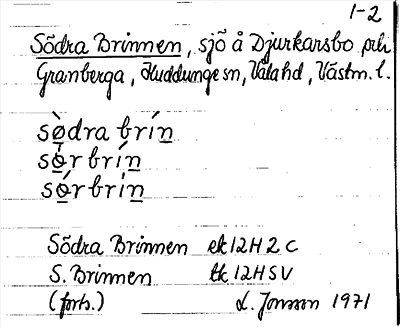 1-2
Södra Brinnen, sjö å Djurkarsbo och
Granberga, Huddunge sn, Våla hd, Västm. l.
sö̀dra brín
sö̀r brín
sö́r brín
Södra Brinnen ek 12H 2 c
S. Brinnen tk 12H SV
(forts.) L. Jonsson 1971